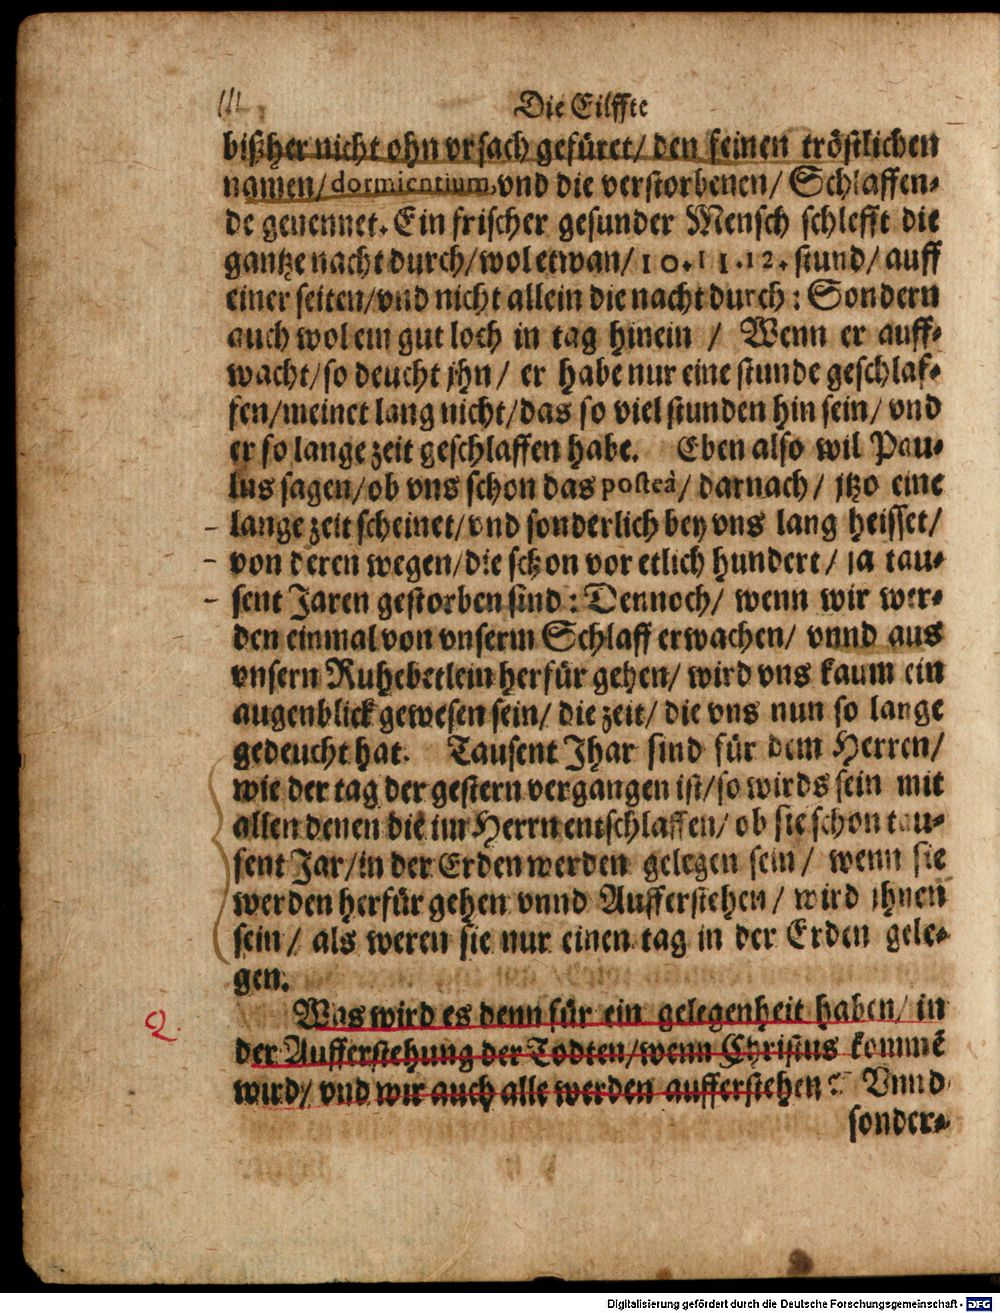 Die Eilffte
bißher nicht ohn vrsach gefüret/ den feinen tröstlichen
namen/ dormientium, vnd die verstorbenen/ Schlaffen⸗
de genennet. Ein frischer gesunder Mensch schlefft die
gantze nacht durch/ wol etwan/ 10. 11. 12. stund/ auff
einer seiten/ vnd nicht allein die nacht durch: Sondern
auch wol ein gut loch in tag hinein / Wenn er auff⸗
wacht/ so deucht jhn/ er habe nur eine stunde geschlaf⸗
fen/ meinet lang nicht/ das so viel stunden hin sein/ vnd
er so lange zeit geschlaffen habe. Eben also wil Pau⸗
lus sagen/ ob vns schon das posteà/ darnach/ jtzo eine
lange zeit scheinet/ vnd sonderlich bey vns lang heisset/
von deren wegen/ die schon vor etlich hundert/ ja tau⸗
sent Jaren gestorben sind: Dennoch/ wenn wir wer⸗
den einmal von vnserm Schlaff erwachen/ vnnd aus
vnsern Ruhebetlein herfür gehen/ wird vns kaum ein
augenblick gewesen sein/ die zeit/ die vns nun so lange
gedeucht hat. Tausent Jhar sind für dem Herren/
wie der tag der gestern vergangen ist/ so wirds sein mit
allen denen die im Herrn entschlaffen/ ob sie schon tau⸗
sent Jar/ in der Erden werden gelegen sein/ wenn sie
werden herfür gehen vnnd Aufferstehen/ wird jhnen
sein/ als weren sie nur einen tag in der Erden gele⸗
gen.
Was wird es denn für ein gelegenheit haben/ in
der Aufferstehung der Todten/ wenn Christus kommē
wird/ vnd wir auch alle werden aufferstehen? Vnnd
sonder⸗
2.
Digitalisierung gefördert durch die Deutsche Forschungsgemeinschaft - DFG